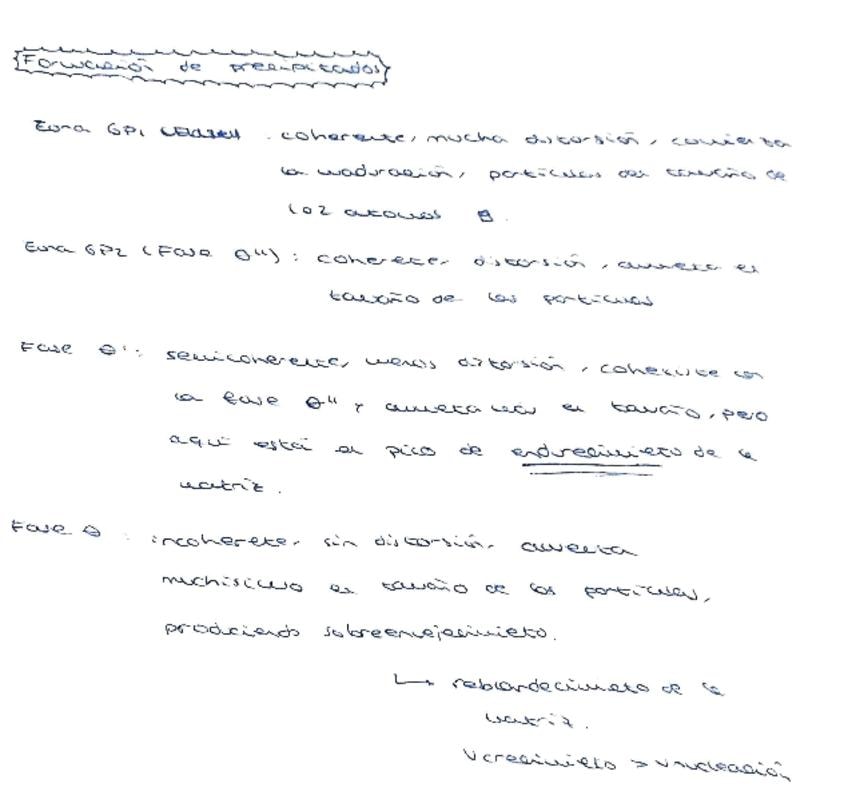 Formación de precipitados
Zona GP1 : coherente, mucha distorsión, comienza
la maduración, partículas del tamaño de
1 o 2 átomos
Zona GP2 (Fase θ'') : coherente, distorsión, aumenta el
tamaño de las partículas
Fase θ' : semicoherente, menos distorsión, coherente con
la fase θ'' y aumenta más el tamaño, pero
aquí está el pico de endurecimiento de la
matriz.
Fase θ : incoherente, sin distorsión, aumenta
muchísimo el tamaño de las partículas,
produciendo sobreenvejecimiento.
↳ reblandecimiento de la
matriz.
Vcrecimiento > Vnucleación